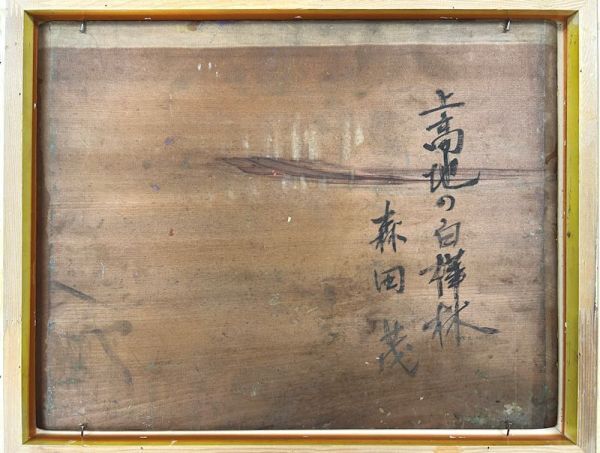 上高地の白樺林
森田茂